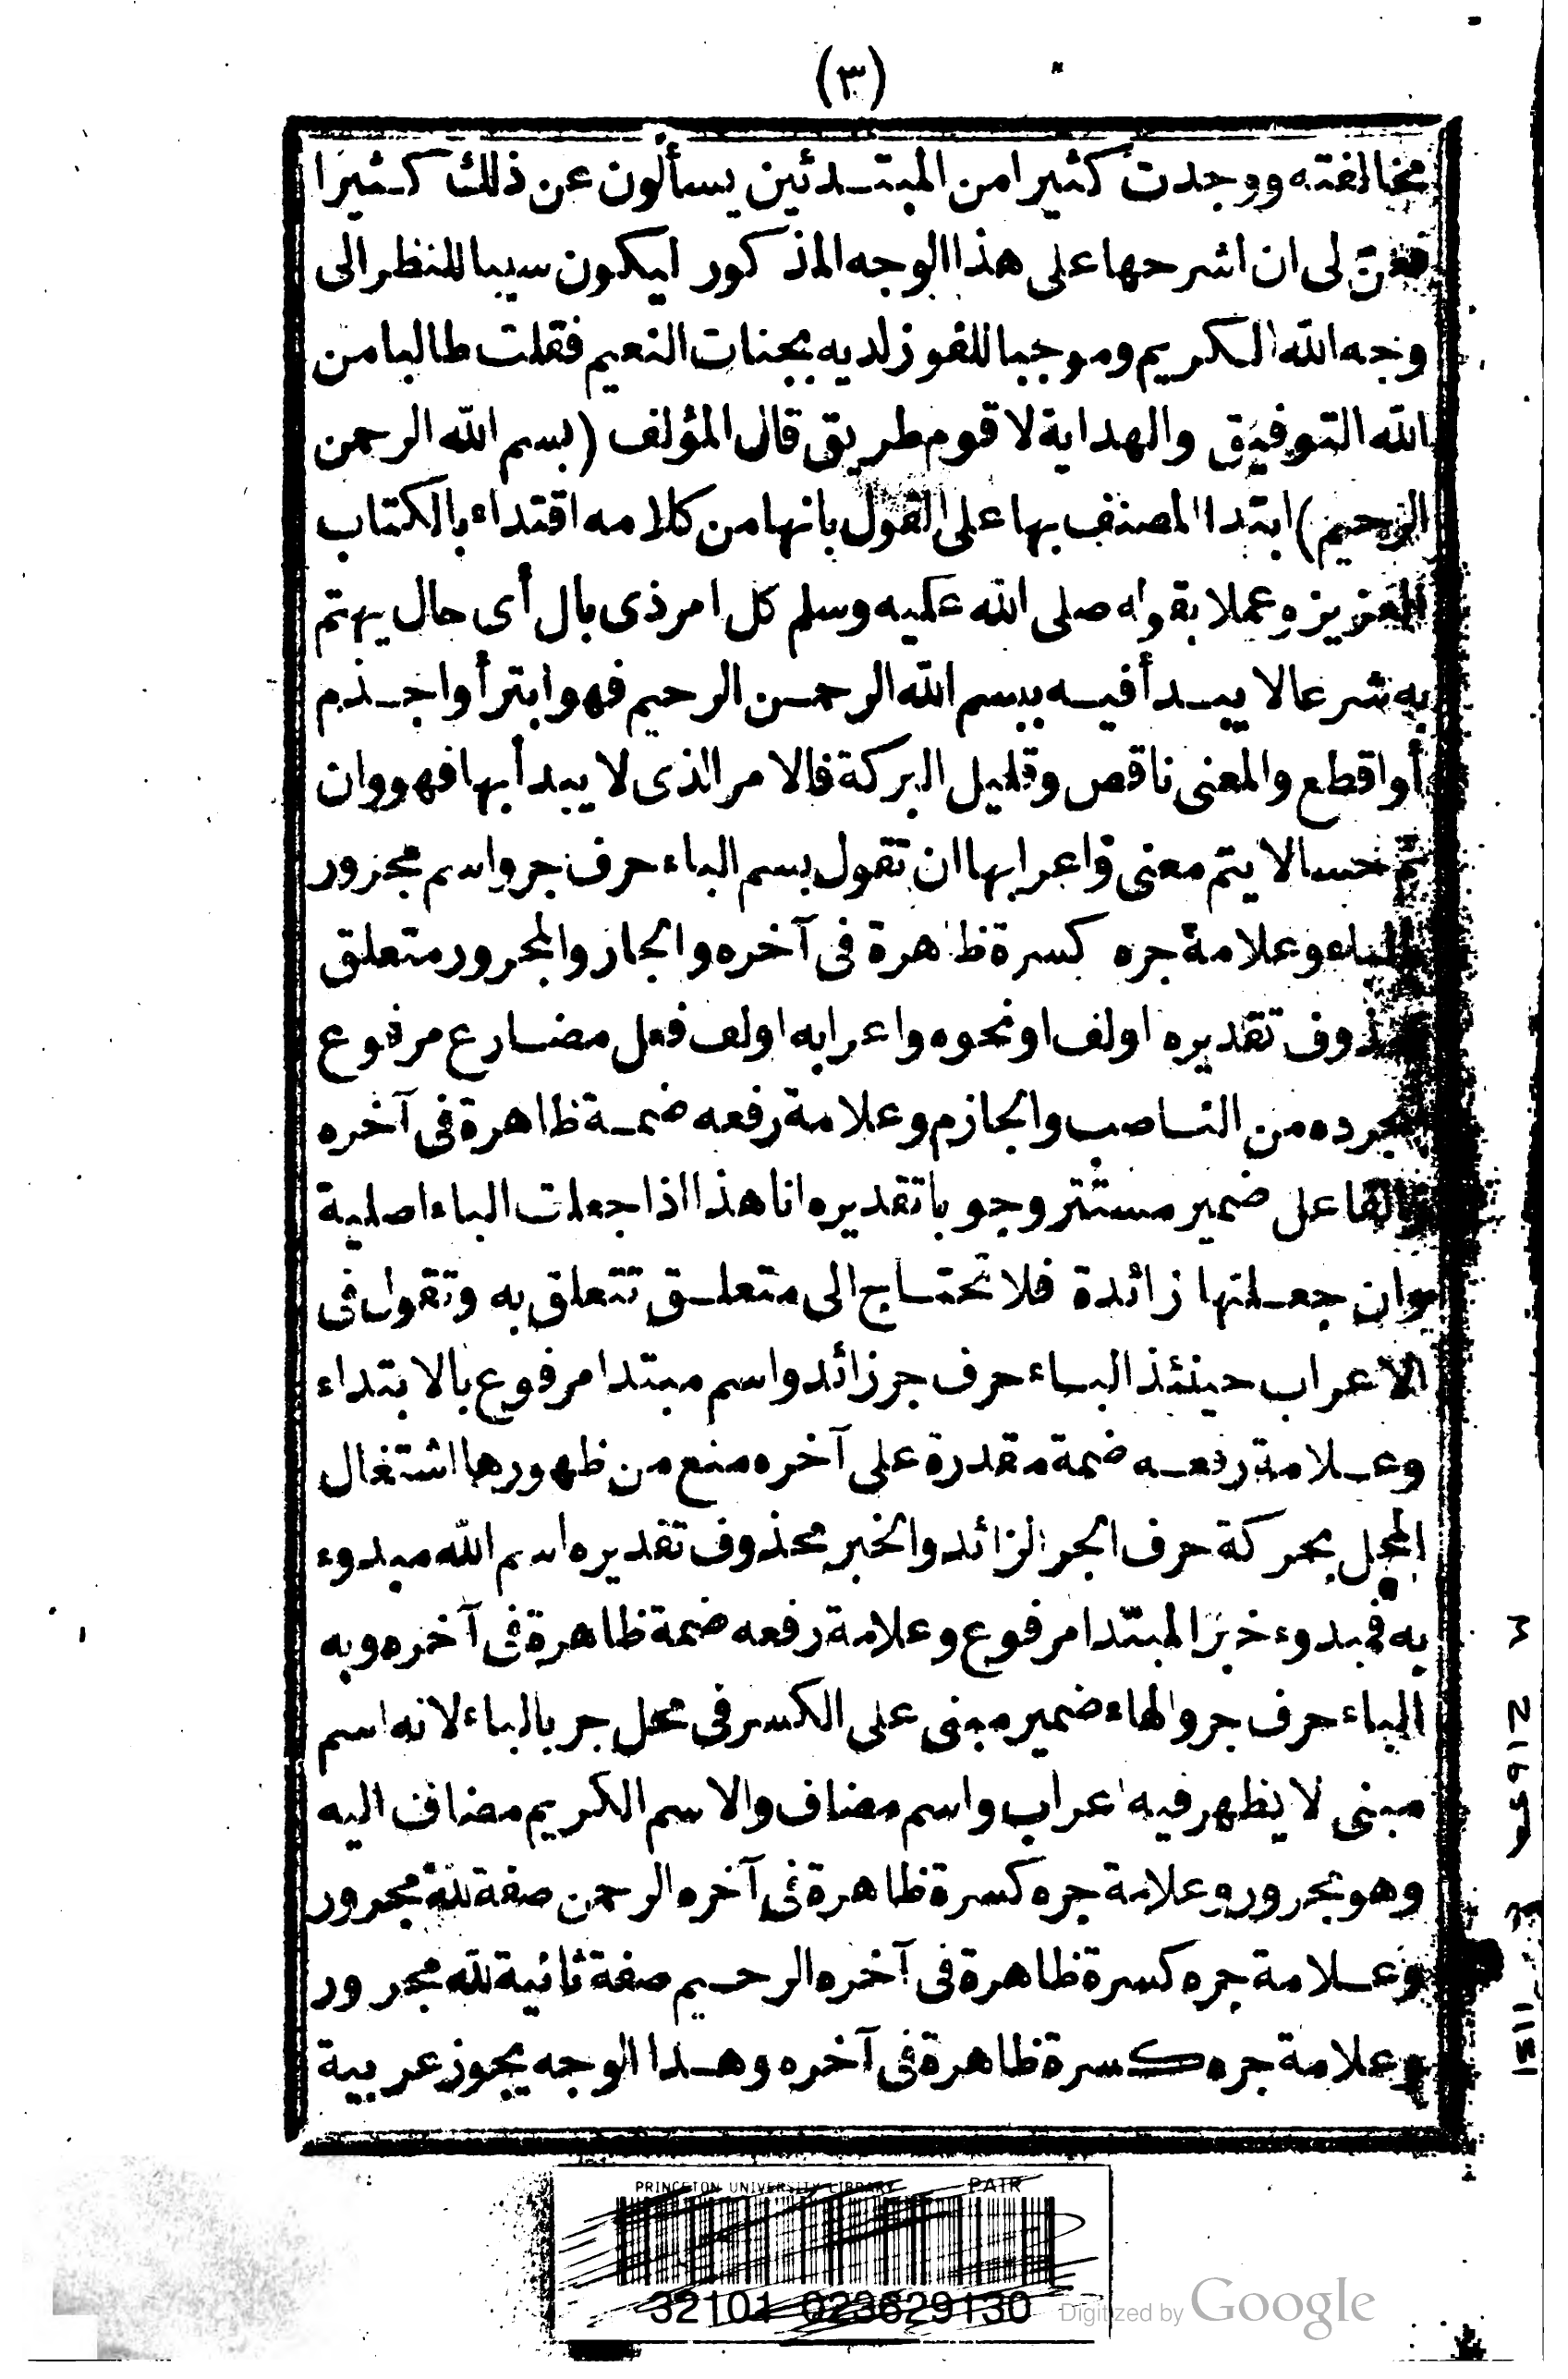 (٣)
مخالفته ووجدت كثيرا من المبتـدئين يسألون عن ذلك كـثيرا
فعنّ لى ان اشرحها على هذا الوجه المذكور ليكون سببا للنظر الى
وجه الله الكريم وموجبا للفوز لديه بجنات النعيم فقلت طالبا من
الله التوفيق والهداية لاقوم طريق قال المؤلف (بسم الله الرحمن
الرحيم) ابتدا المصنف بها على القول بانها من كلامه اقتداء بالكتاب
العزيز وعملا بقوله صلى الله عليه وسلم كل امر ذى بال أى حال يهتم
به شرعا لا يبـدأ فيـه ببسم الله الرحمـن الرحيم فهو ابتر أو اجـذم
أو اقطع والمعنى ناقص وقليل البركة فالامر الذى لا يبدأ بها فهو وان
تم حسا لا يتم معنى واعرابها ان تقول بسم الباء حرف جر واسم مجرور
بالباء وعلامة جره كسرة ظاهرة فى آخره والجار والمجرور متعلق
بمحذوف تقديره اولف او نحوه واعرابه اولف فعل مضارع مرفوع
لتجرده من الناصب والجازم وعلامة رفعه ضمـة ظاهرة فى آخره
والفاعل ضمير مستتر وجوبا تقديره انا هذا اذا جعلت الباء اصلية
وان جعـلتها زائدة فلا تحتـاج الى متعلـق تتعلق به وتقول فى
الاعراب حينئذ البـاء حرف جر زائد واسم مبتدا مرفوع بالابتداء
وعـلامة رفعـه ضمة مقدرة على آخره منع من ظهورها اشتغال
المحل بحركة حرف الجر الزائد والخبر محذوف تقديره اسم الله مبدوء
به فمبدوء خبر المبتدا مرفوع وعلامة رفعه ضمة ظاهرة فى آخره وبه
الباء حرف جر والهاء ضمير مبنى على الكسر فى محل جر بالباء لانه اسم
مبنى لا يظهر فيه اعراب واسم مضاف والاسم الكريم مضاف اليه
وهو مجرور وعلامة جره كسرة ظاهرة فى آخره الرحمن صفة لله مجرور
وعـلامة جره كسرة ظاهرة فى آخره الرحـيم صفة ثانية لله مجرور
وعلامة جره كسرة ظاهرة فى آخره وهـذا الوجه يجوز عربية
PRINCETON UNIVERSITY LIBRARY PAIR
32101 023629130
Digitized by Google